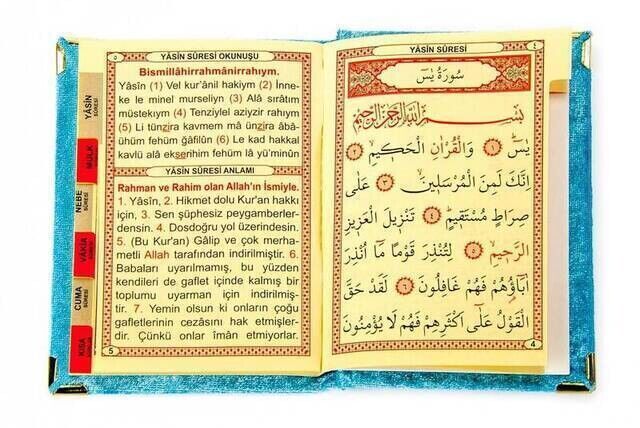 ٥
YÂSİN SÛRESİ OKUNUŞU
Bismillâhirrahmânirrahıym.
Yâsîn (1) Vel kur'ânil hakiym (2) İnne-
ke le minel murseliyn (3) Alâ sırâtım
müstekıym (4) Tenziylel aziyzir rahıym
(5) Li tünzira kavmem mâ ünzira âbâ-
ühüm fehüm ğâfilûn (6) Le kad hakkal
kavlü alâ ekserihim fehüm lâ yü'minûn
YÂSİN SÛRESİ ANLAMI
Rahman ve Rahim olan Allah'ın İsmiyle.
1. Yâsîn, 2. Hikmet dolu Kur'an hakkı
için, 3. Sen şüphesiz peygamberler-
densin. 4. Dosdoğru yol üzerindesin.
5. (Bu Kur'an) Gâlip ve çok merha-
metli Allah tarafından indirilmiştir. 6.
Babaları uyarılmamış, bu yüzden
kendileri de gaflet içinde kalmış bir
toplumu uyarman için indirilmiş-
tir. 7. Yemin olsun ki onların çoğu
gafletlerinin cezasını hak etmişler-
dir. Çünkü onlar îmân etmiyorlar.
5
YÂSİN
SÛRESİ
MÜLK
SÛRESİ
NEBE
SÛRESİ
VÂKIA
SÛRESİ
CUMA
SÛRESİ
KISA
YÂSİN SÛRESİ
٤
سُورَةُ يٰسٓ
بِسْمِ اللّٰهِ الرَّحْمٰنِ الرَّحِيمِ
يٰسٓ ١ وَالْقُرْاٰنِ الْحَكِيمِ ٢
اِنَّكَ لَمِنَ الْمُرْسَلِينَ ٣ عَلٰى
صِرَاطٍ مُسْتَقِيمٍ ٤ تَنْزِيلَ الْعَزِيزِ
الرَّحِيمِ ٥ لِتُنْذِرَ قَوْمًا مَٓا اُنْذِرَ
اٰبَٓاؤُهُمْ فَهُمْ غَافِلُونَ ٦ لَقَدْ حَقَّ
الْقَوْلُ عَلٰٓى اَكْثَرِهِمْ فَهُمْ لَا يُؤْمِنُونَ
4